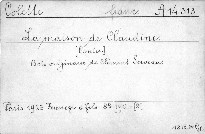 Colette franc A 14.313
La maison de Claudine
[Contes]
Bois originaux de Clément Serveau
Paris 1923 Ferenczi & fils 8° 190-[2]